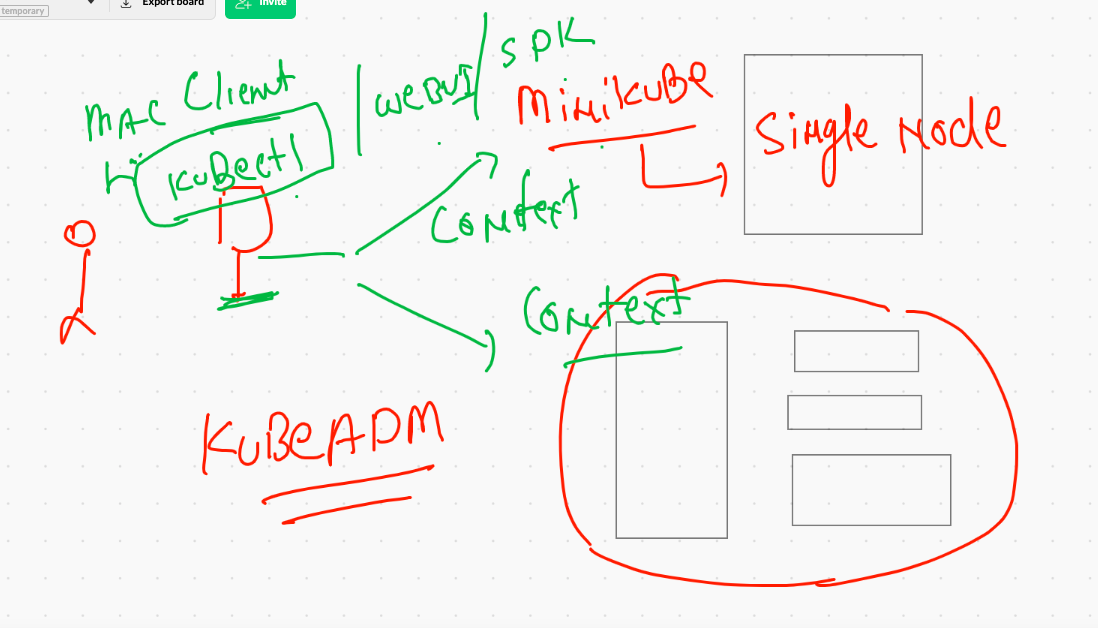 temporary
Export board
Invite
MAC Client
| WEBUI / SDK
KUBECtl
MiniKUBE
Single Node
Context
Context
KUBEADM